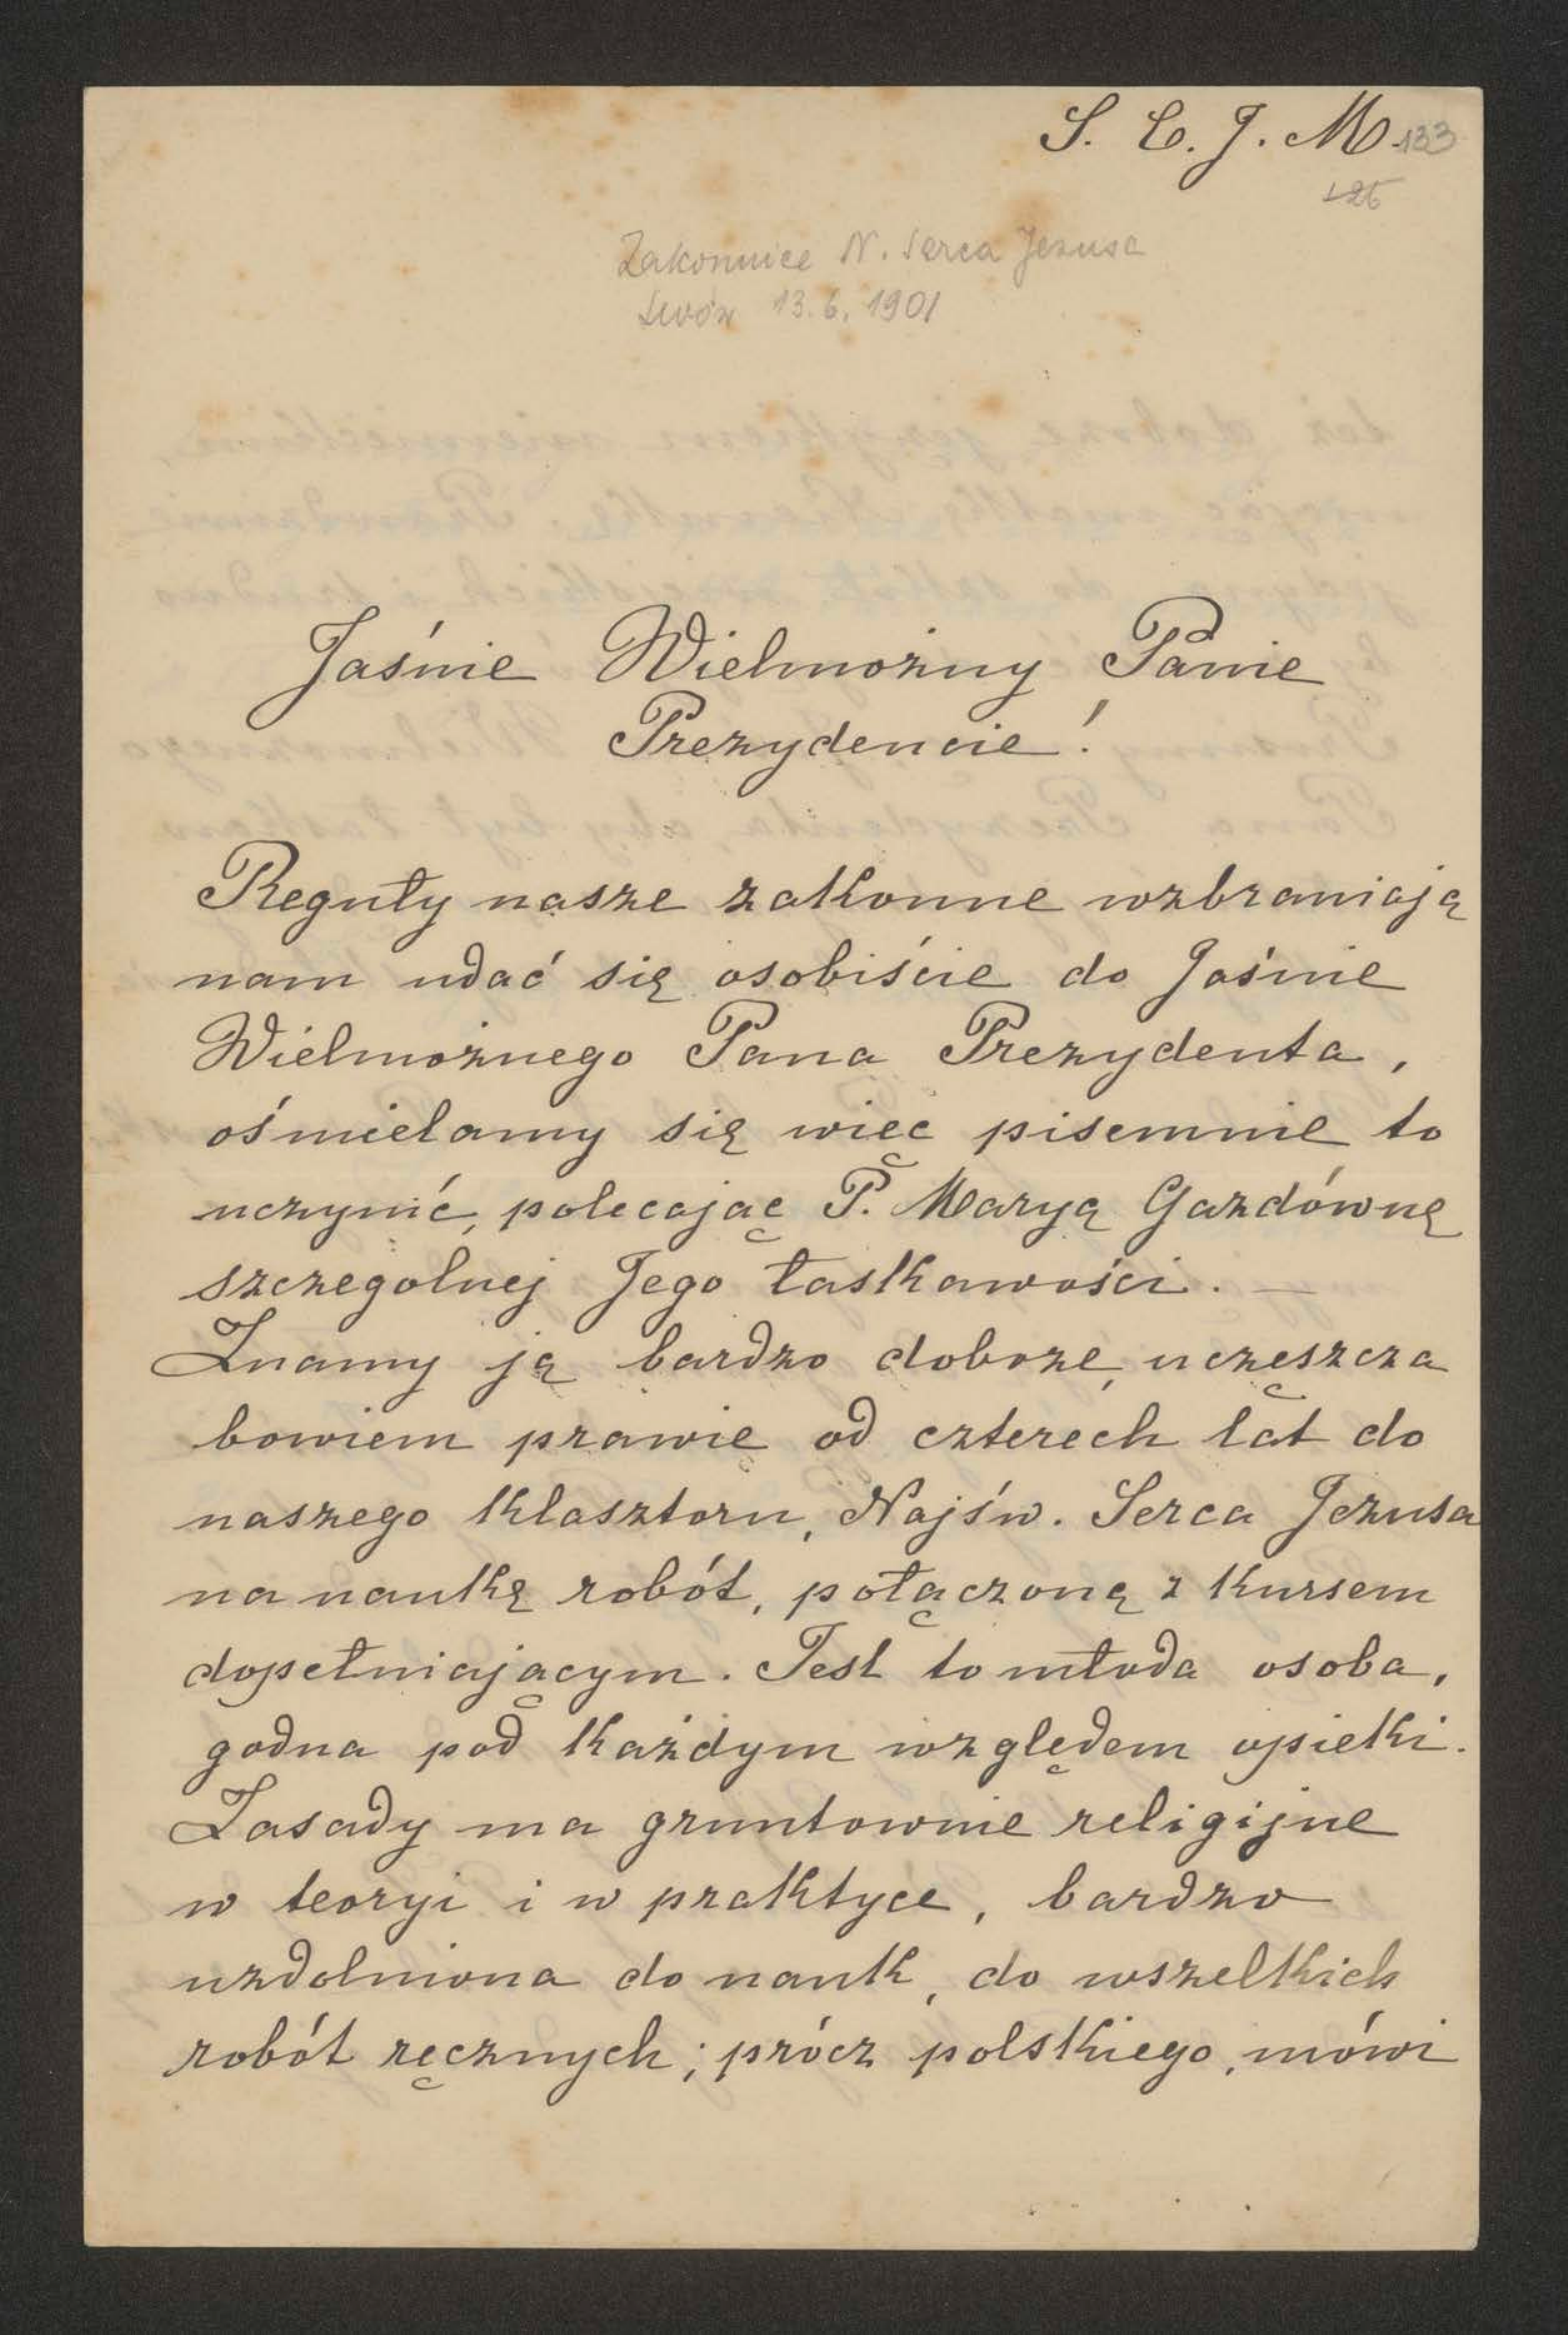 S. C. J. M. 133
126
Zakonnice N. Serca Jezusa
Lwów 13.6.1901
Jaśnie Wielmożny Panie
Prezydencie!
Reguły nasze zakonne wzbraniają
nam udać się osobiście do Jaśnie
Wielmożnego Pana Prezydenta,
ośmielamy się więc pisemnie to
uczynić, polecając P. Maryą Gazdównę
szczególnej Jego łaskawości. —
Znamy ją bardzo dobrze, uczęszcza
bowiem prawie od czterech lat do
naszego klasztoru, Najśw. Serca Jezusa
na naukę robót, połączoną z kursem
dopełniającym. Jest to młoda osoba,
godna pod każdym względem opieki.
Zasady ma gruntownie religijne
w teoryi i w praktyce, bardzo
uzdolniona do nauk, do wszelkich
robót ręcznych; prócz polskiego, mówi